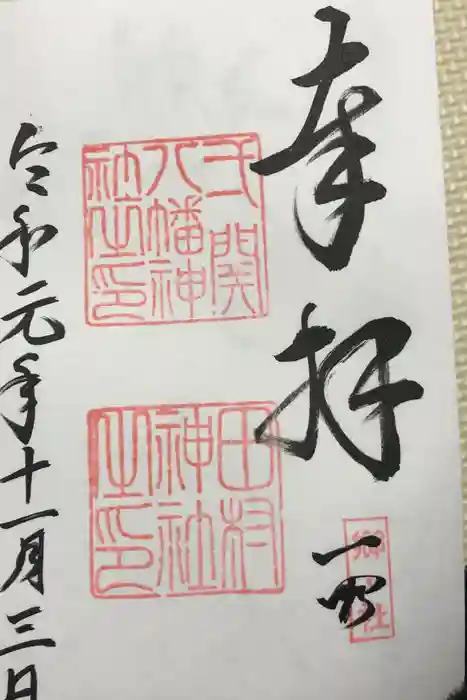 奉拝
関八幡神社之印
田村神社之印
令和元年十一月三日